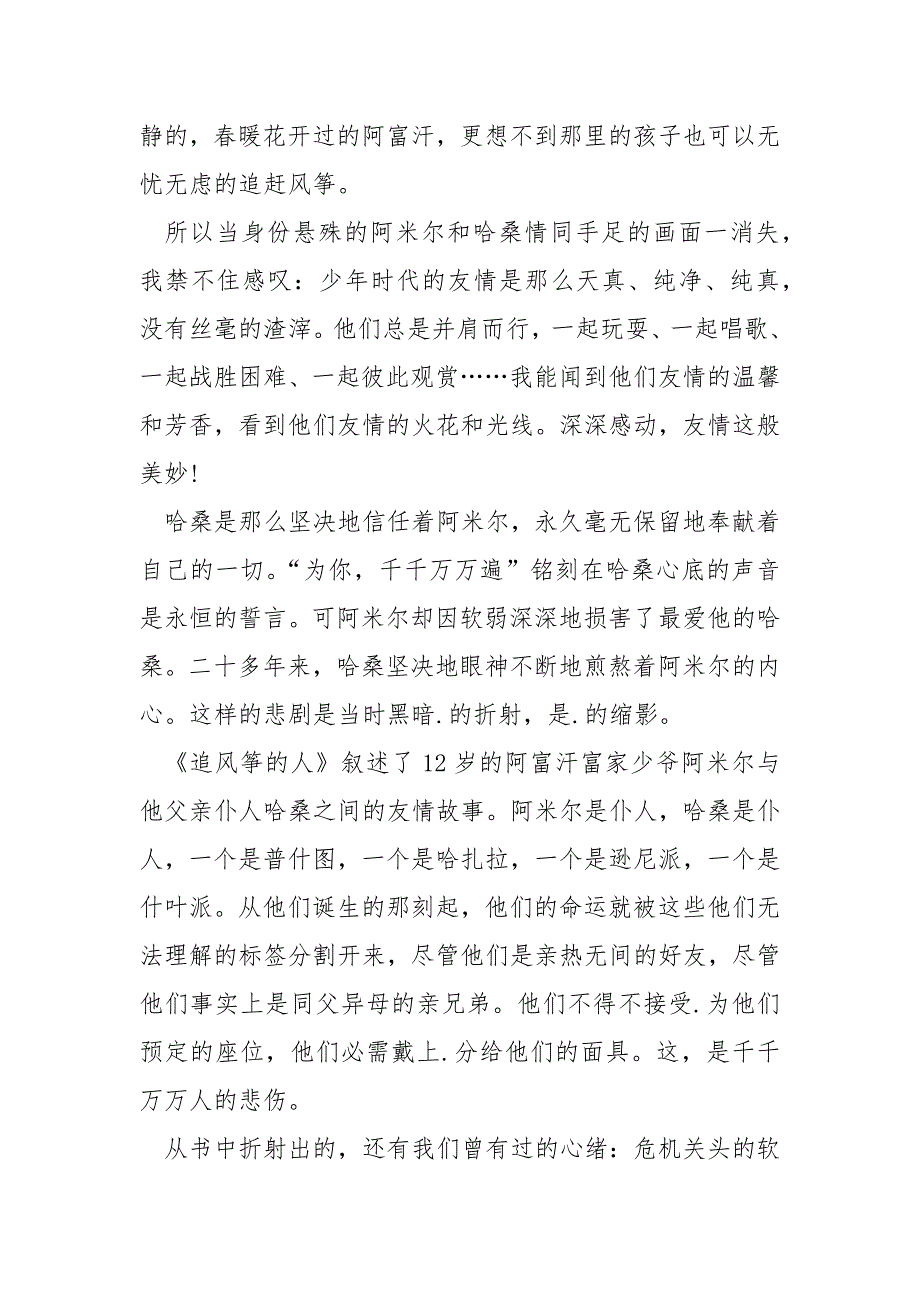 静的，春暖花开过的阿富汗，更想不到那里的孩子也可以无
忧无虑的追赶风筝。
所以当身份悬殊的阿米尔和哈桑情同手足的画面一消失，
我禁不住感叹：少年时代的友情是那么天真、纯净、纯真，
没有丝毫的渣滓。他们总是并肩而行，一起玩耍、一起唱歌、
一起战胜困难、一起彼此观赏……我能闻到他们友情的温馨
和芳香，看到他们友情的火花和光线。深深感动，友情这般
美妙!
哈桑是那么坚决地信任着阿米尔，永久毫无保留地奉献着
自己的一切。“为你，千千万万遍”铭刻在哈桑心底的声音
是永恒的誓言。可阿米尔却因软弱深深地损害了最爱他的哈
桑。二十多年来，哈桑坚决地眼神不断地煎熬着阿米尔的内
心。这样的悲剧是当时黑暗.的折射，是.的缩影。
《追风筝的人》叙述了 12 岁的阿富汗富家少爷阿米尔与
他父亲仆人哈桑之间的友情故事。阿米尔是仆人，哈桑是仆
人，一个是普什图，一个是哈扎拉，一个是逊尼派，一个是
什叶派。从他们诞生的那刻起，他们的命运就被这些他们无
法理解的标签分割开来，尽管他们是亲热无间的好友，尽管
他们事实上是同父异母的亲兄弟。他们不得不接受.为他们
预定的座位，他们必需戴上.分给他们的面具。这，是千千
万万人的悲伤。
从书中折射出的，还有我们曾有过的心绪：危机关头的软